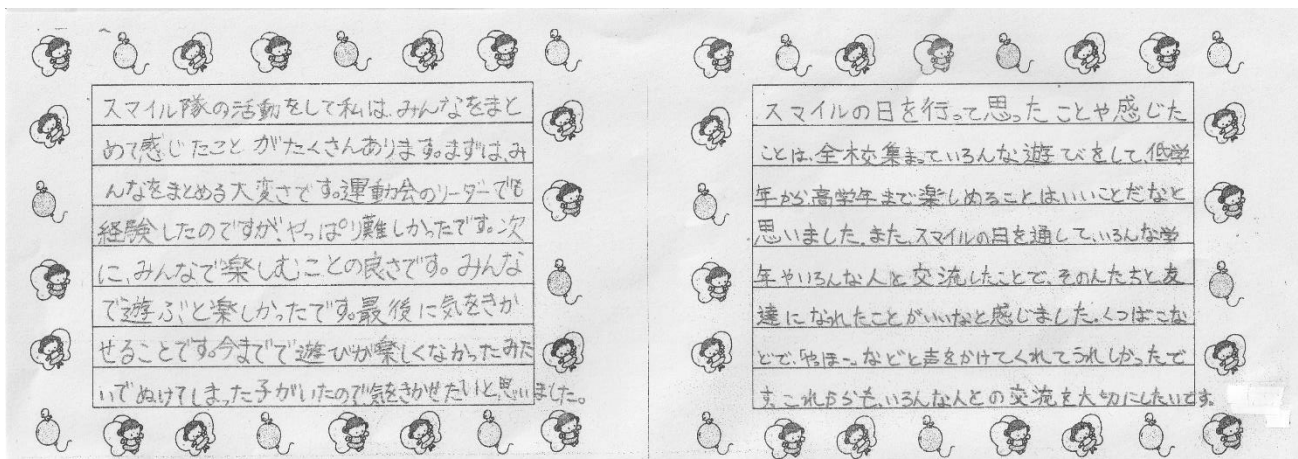 スマイル隊の活動をして私は、みんなをまと
めて感じたことがたくさんあります。まずは、み
んなをまとめる大変さです。運動会のリーダーでも
経験したのですが、やっぱり難しかったです。次
に、みんなで楽しむことの良さです。みんな
で遊ぶと楽しかったです。最後に気をきか
せることです。今までで遊びが楽しくなかったみた
いでぬけてしまった子がいたので気をきかせたいと、思いました。
スマイルの日を行って思ったことや感じた
ことは、全校集まっていろんな遊びをして、低学
年から高学年まで楽しめることはいいことだなと
思いました。また、スマイルの日を通して、いろんな学
年やいろんな人と交流したことで、その人たちと友
達になれたことがいいなと感じました。くつばこな
どで、「やほ〜。」などと声をかけてくれてうれしかったで
す。これからも、いろんな人との交流を大切にしたいです。